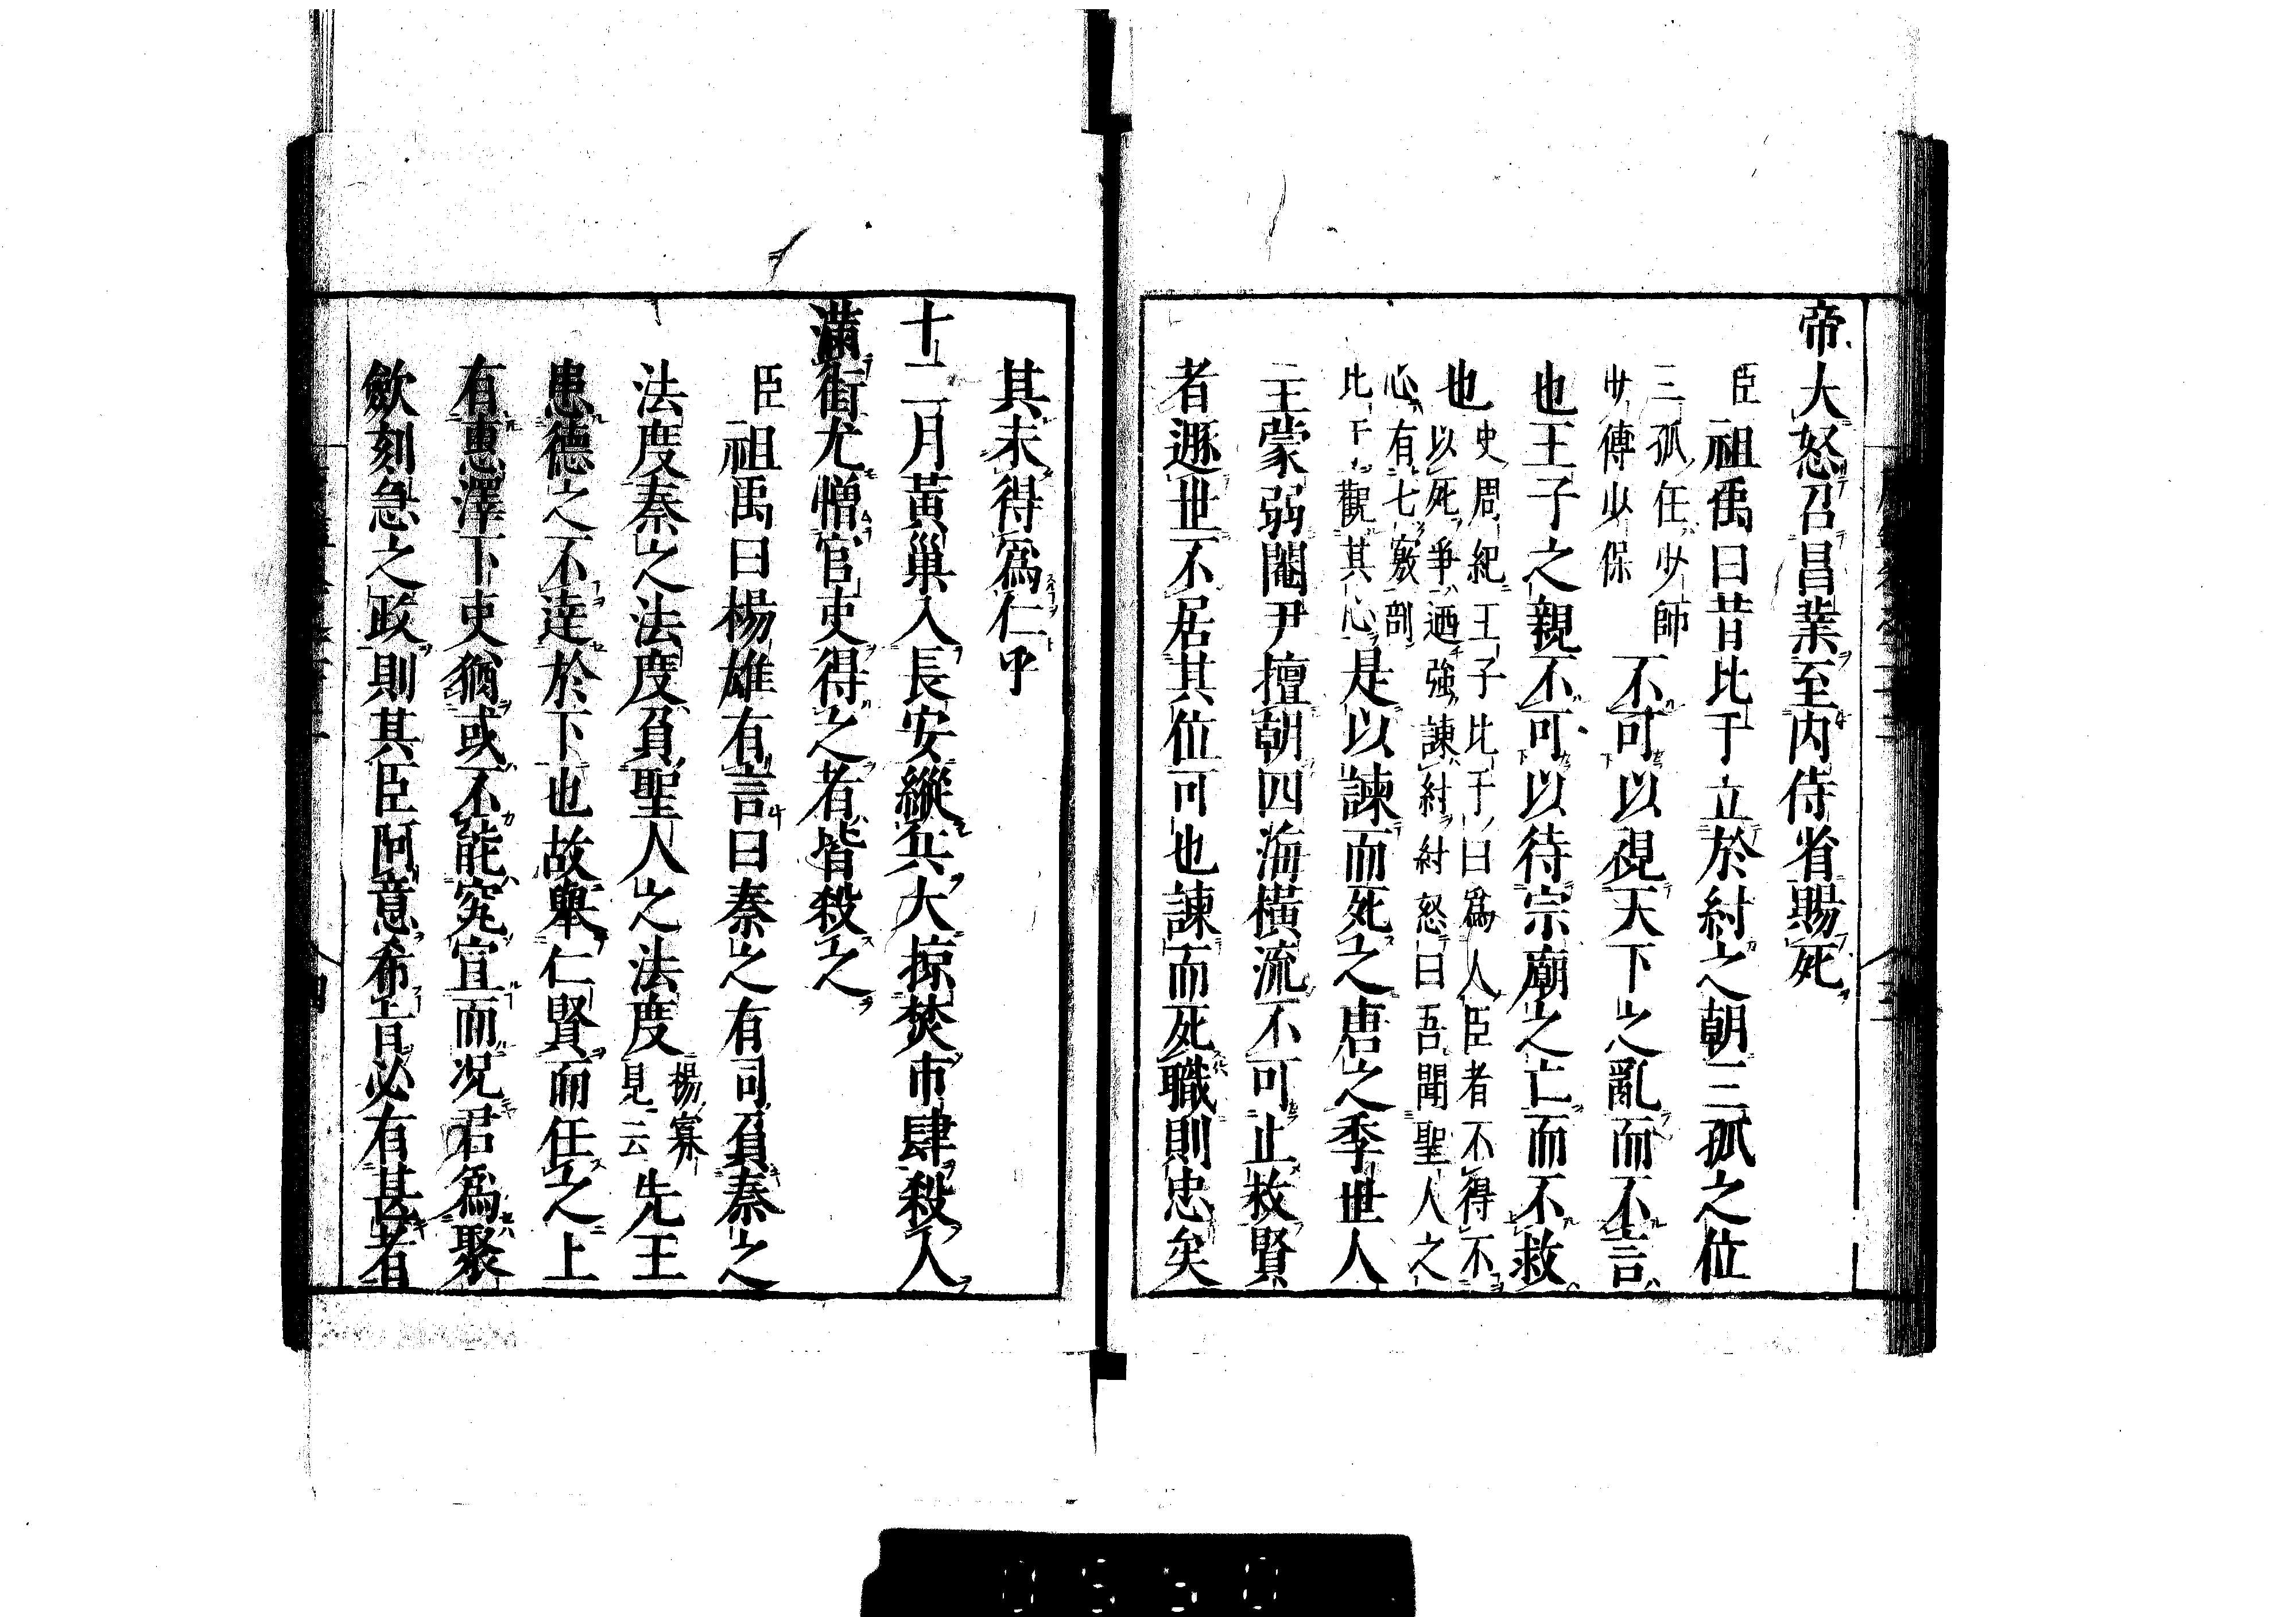 帝大怒召昌業至內侍省賜死
臣祖禹曰昔比干立於紂之朝三孤之位
三孤任少師
少傅少保
不可以視天下之亂而不言
也王子之親不可以待宗廟之亡而不救
也
史周紀王子比干曰爲人臣者不得不
以死爭迺強諫紂紂怒曰吾聞聖人之
心有七竅剖
比干觀其心
是以諫而死之唐之季世人
主蒙弱閹尹擅朝四海橫流不可止救賢
者遯世不居其位可也諫而死職則忠矣
其未得爲仁乎
十二月黃巢入長安縱兵大掠焚市肆殺人
滿街尤憎官吏得之者皆殺之
臣祖禹曰楊雄有言曰秦之有司負秦之
法度秦之法度負聖人之法度
楊寡
見云
先王
患德之不達於下也故擧仁賢而任之上
有惠澤下吏猶或不能究宣而況君爲聚
斂刻急之政則其臣阿意希旨必有甚者